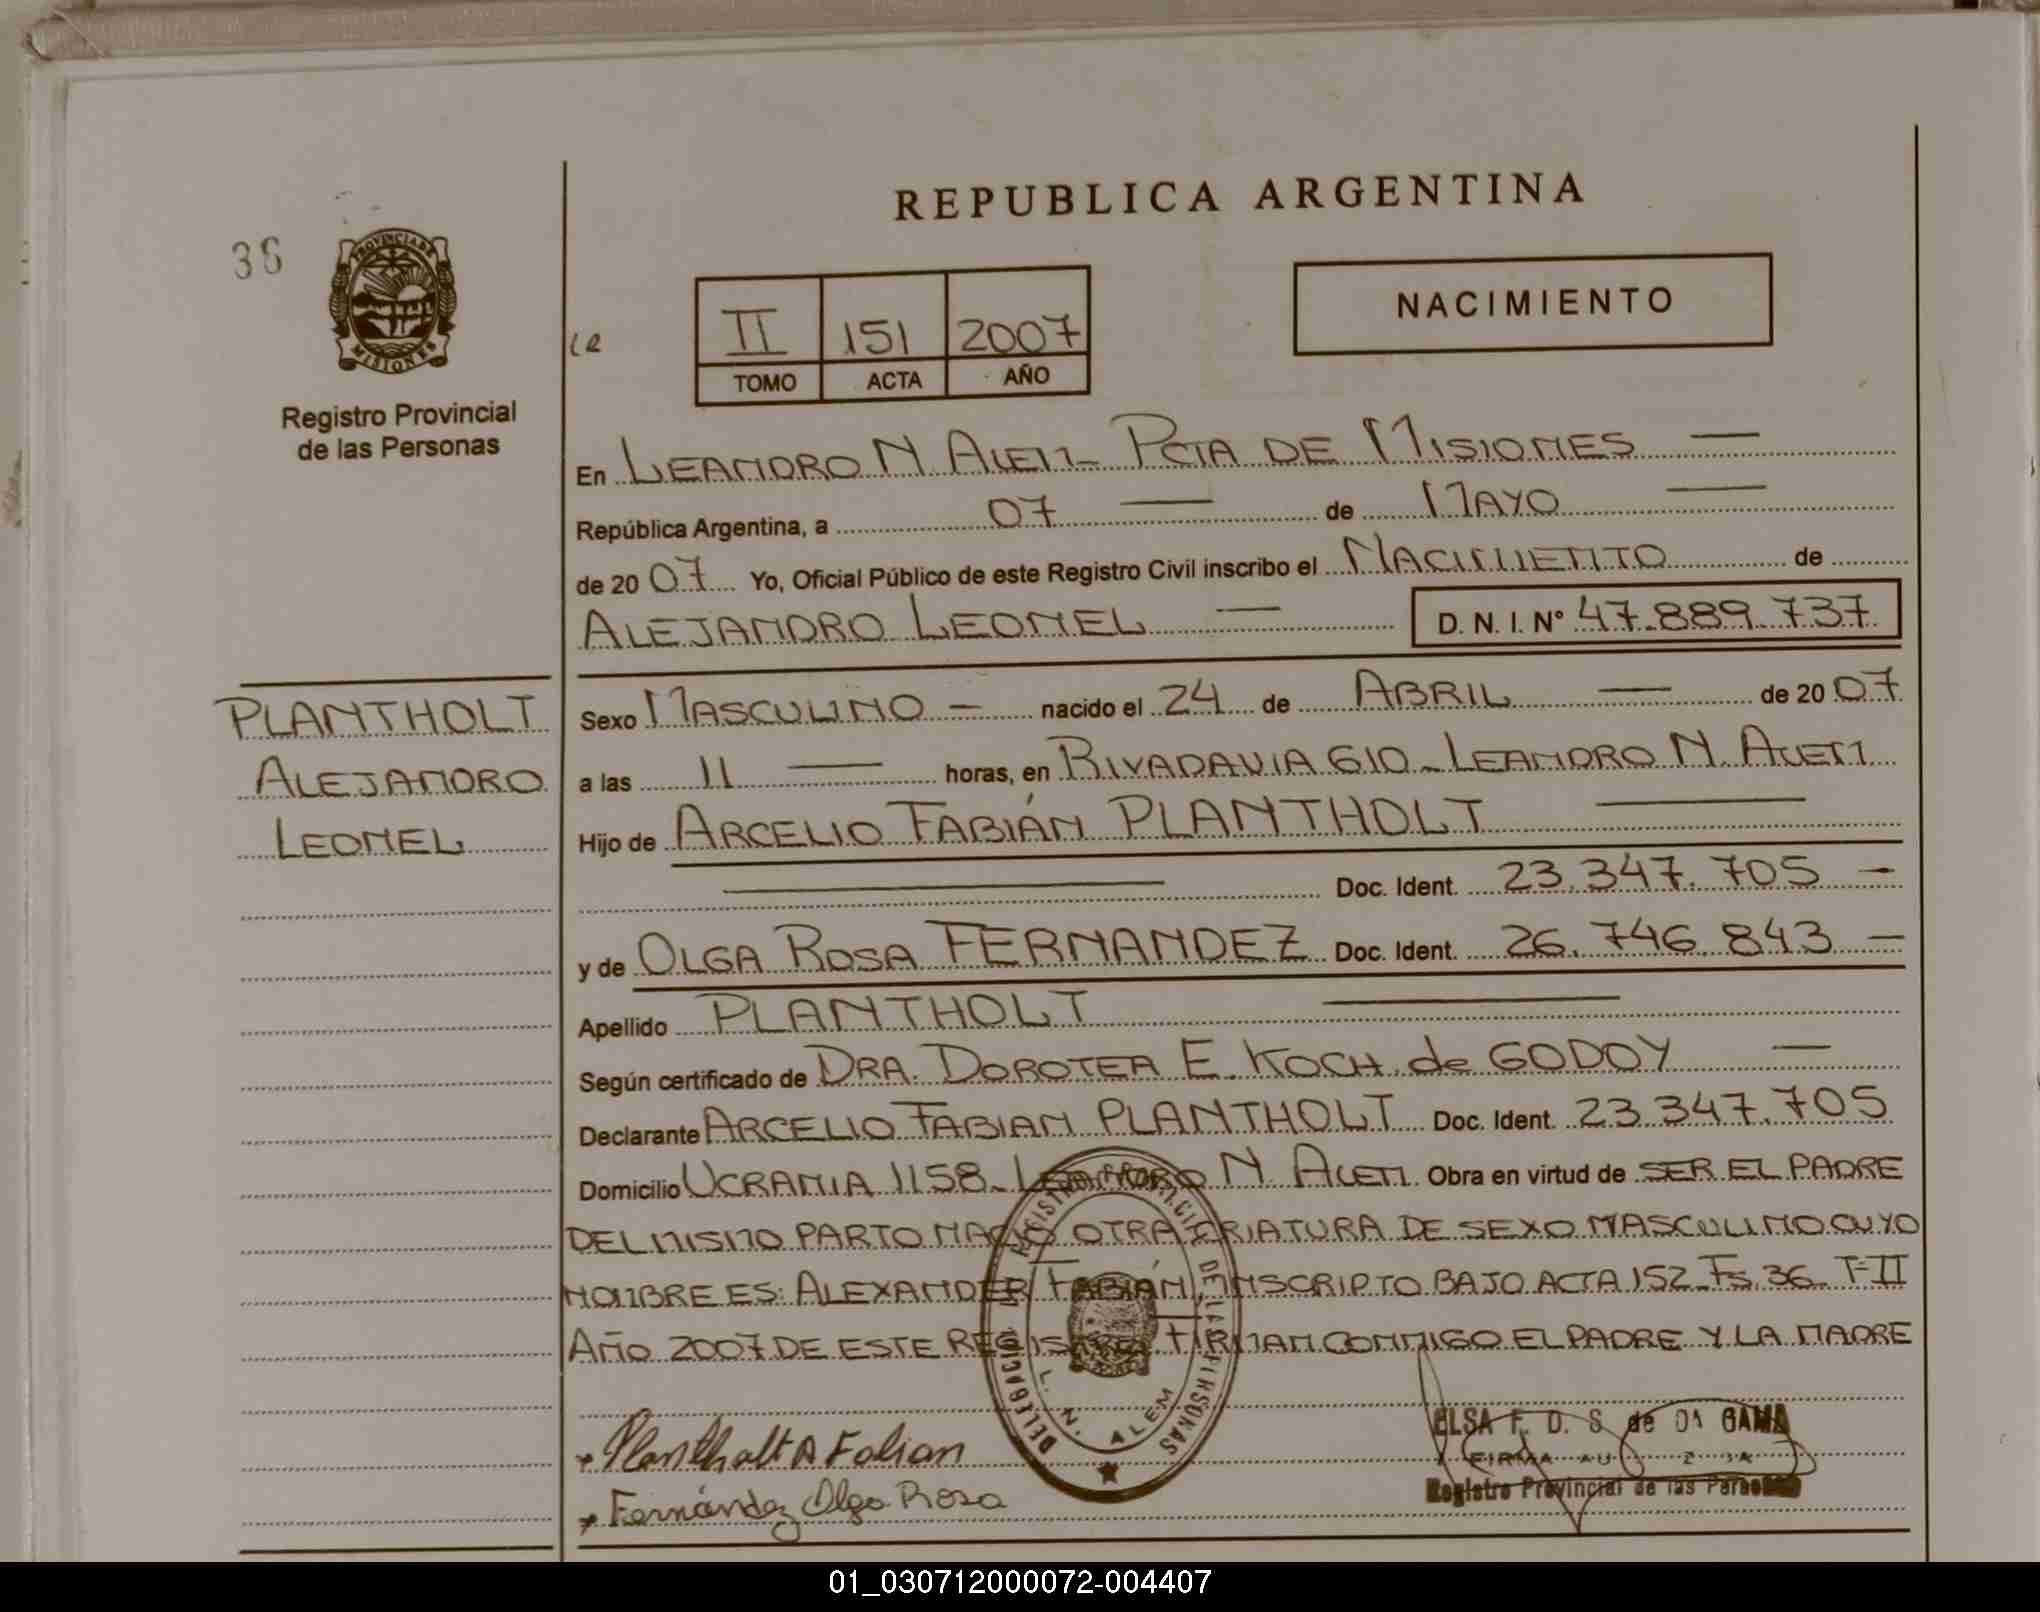 REPUBLICA ARGENTINA
36
PROVINCIA DE
MISIONES
Registro Provincial
de las Personas
II 151 2007
TOMO ACTA AÑO
NACIMIENTO
En LEANDRO N. ALEM - PCIA DE MISIONES —
República Argentina, a 07 — de MAYO —
de 2007 Yo, Oficial Público de este Registro Civil inscribo el NACIMIENTO de
ALEJANDRO LEONEL — D. N. I. Nº 47.889.737
PLANTHOLT
ALEJANDRO
LEONEL
Sexo MASCULINO — nacido el 24 de ABRIL — de 2007
a las 11 — horas, en RIVADAVIA 610 - LEANDRO N. ALEM
Hijo de ARCELIO FABIÁN PLANTHOLT —
— Doc. Ident. 23.347.705 —
y de OLGA ROSA FERNANDEZ Doc. Ident. 26.746.843 —
Apellido PLANTHOLT —
Según certificado de DRA. DOROTEA E. KOCH de GODOY —
Declarante ARCELIO FABIAN PLANTHOLT Doc. Ident. 23.347.705
Domicilio UCRANIA 1158 - LEANDRO N. ALEM Obra en virtud de SER EL PADRE
DEL MISMO PARTO NACIO OTRA CRIATURA DE SEXO MASCULINO CUYO
NOMBRE ES: ALEXANDER FABIÁN, INSCRIPTO BAJO ACTA 152 - Fs. 36 - T-II
AÑO 2007 DE ESTE REGISTRO. FIRMAN CONMIGO EL PADRE Y LA MADRE
REGISTRO PROVINCIAL DE LAS PERSONAS
DELEGACION
L. N. ALEM
Plantholt A Fabian
Fernández Olga Rosa
ELSA F. D. S. de DA GAMA
FIRMA
Registro Provincial de las Personas
01_030712000072-004407